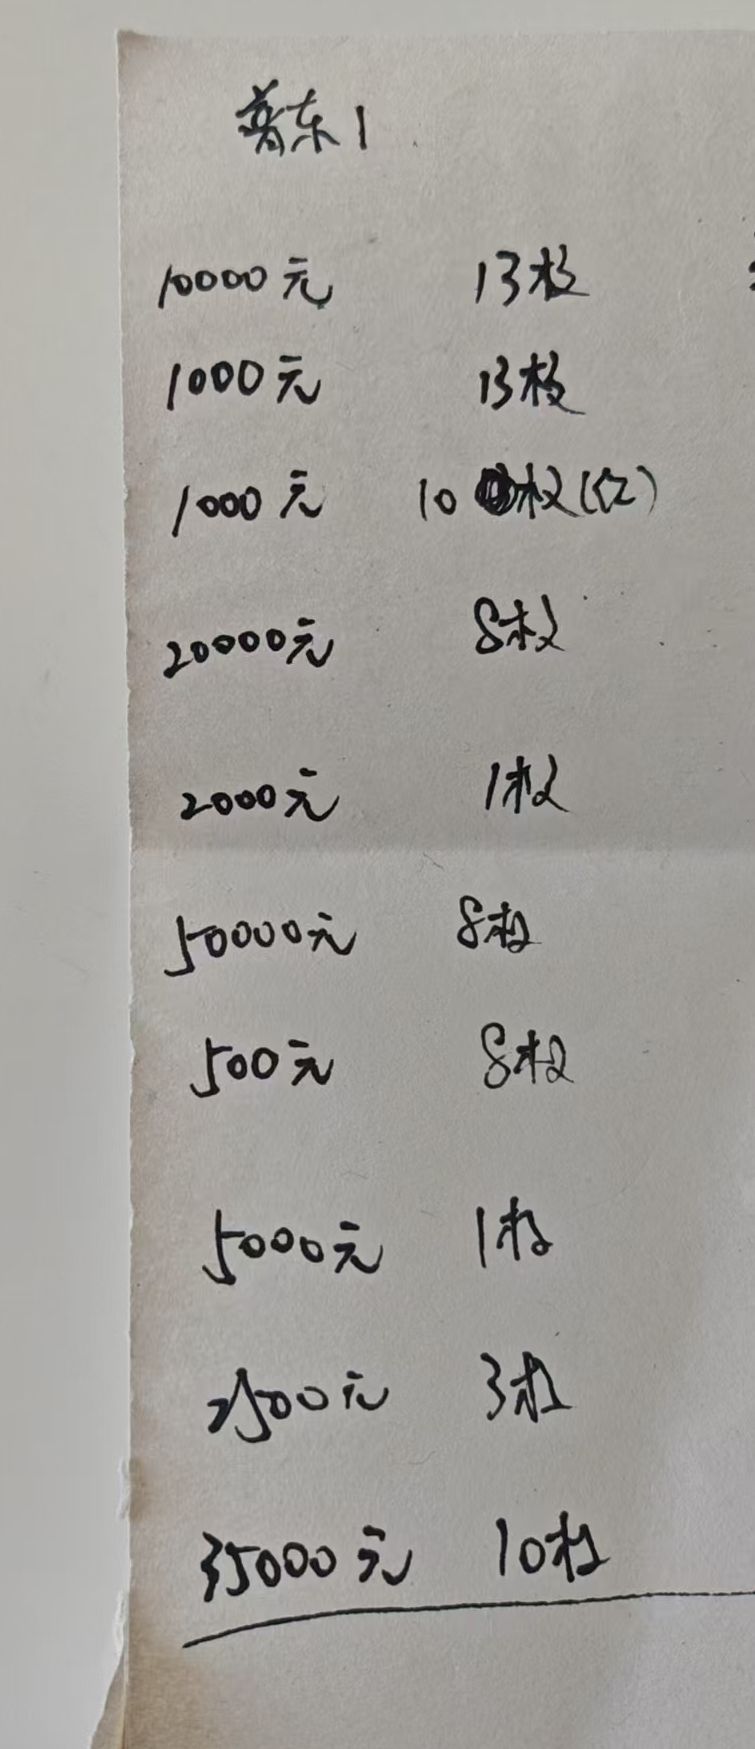 普东1
10000元 13枚
1000元 13枚
1000元 10枚(红)
20000元 8枚
2000元 1枚
50000元 8枚
500元 8枚
5000元 1枚
2500元 3枚
35000元 10枚